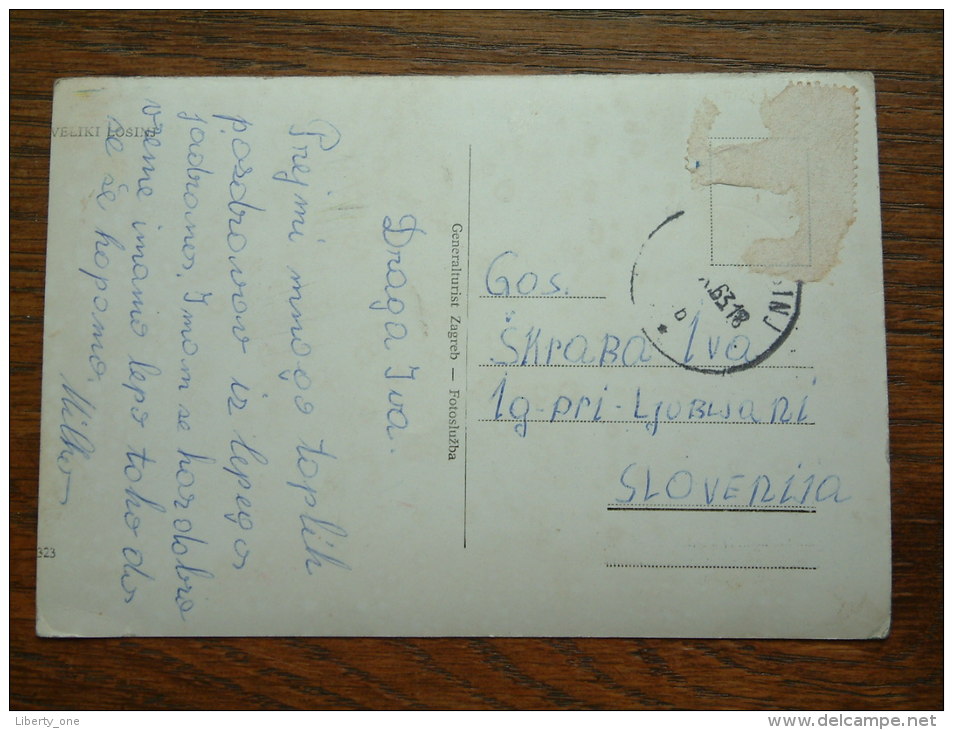 VELIKI LOŠINJ
Draga Iva.
Prejmi mnogo toplih
pozdravov iz lepega
jadrana. Imam se kar dobro
vreme imamo lepo tako da
se še kopamo.
Milka
323
Generalturist Zagreb — Fotoslužba
INJ
63.18
b
*
Gos.
Škraba Iva
Ig-pri-Ljubljani
SLOVENIJA
Liberty_one
http://www.delcampe.net